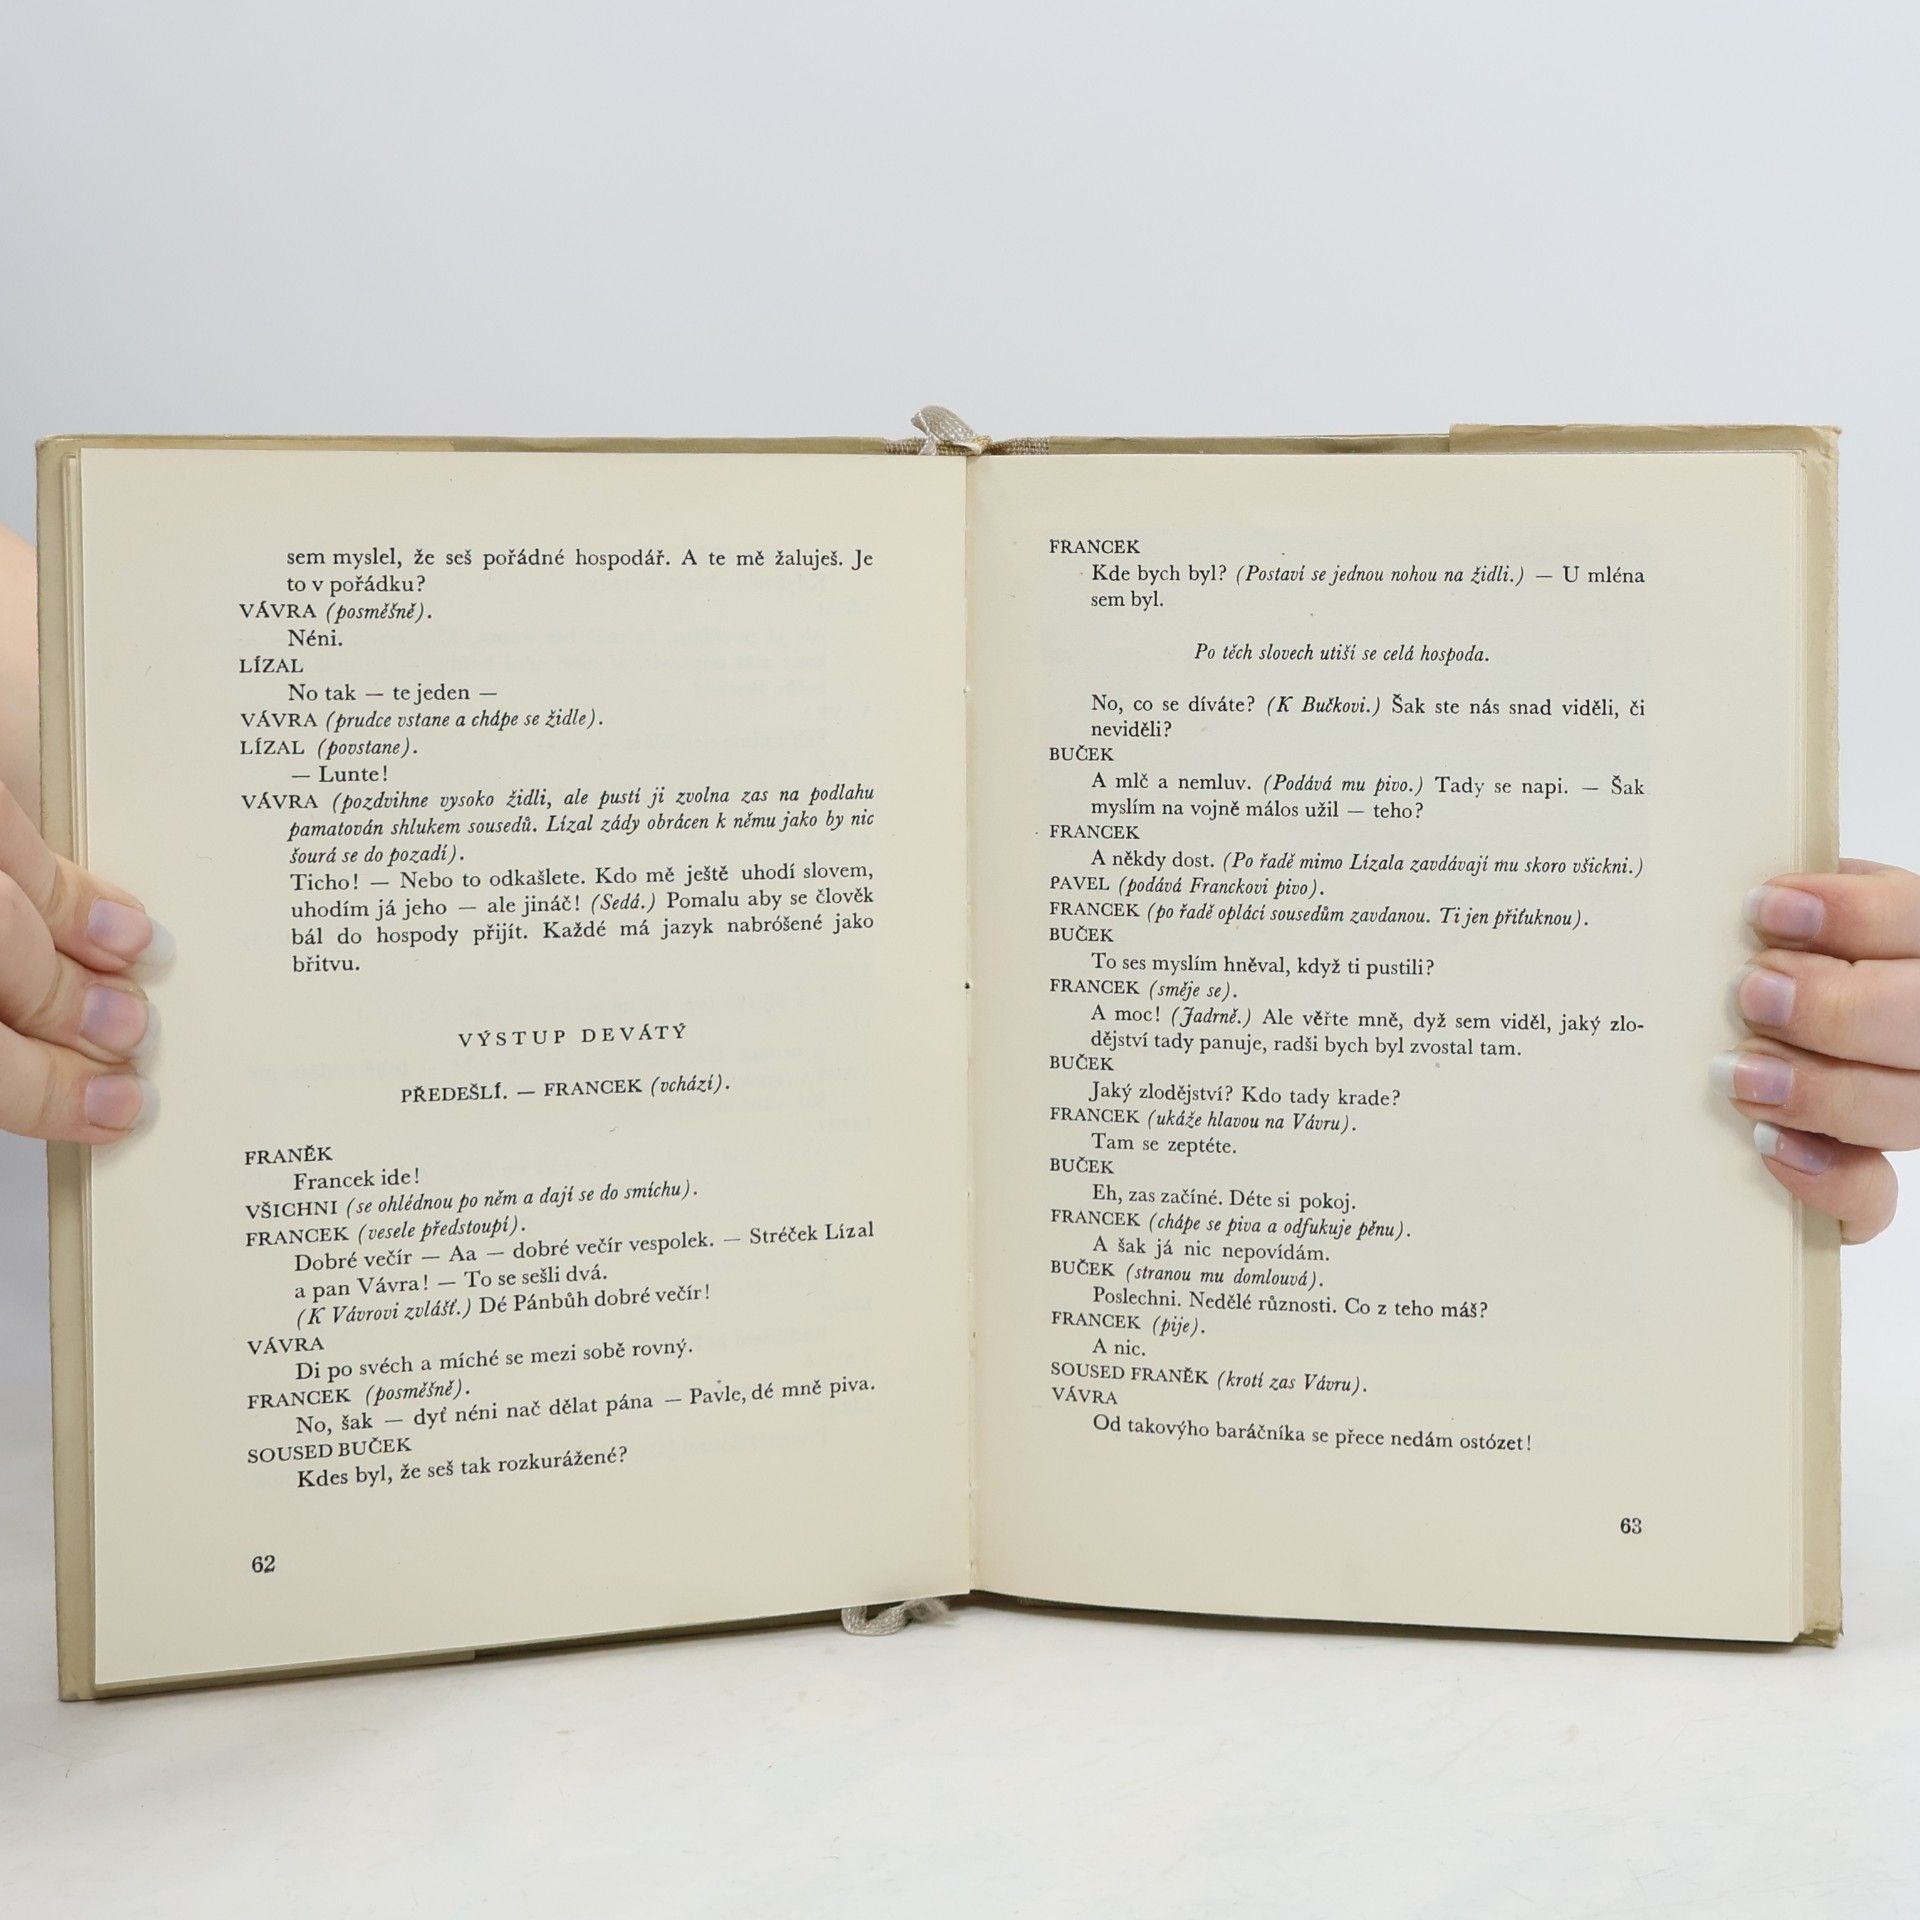 sem myslel, že seš pořádné hospodář. A te mě žaluješ. Je
to v pořádku?
VÁVRA (posměšně).
Néni.
LÍZAL
No tak — te jeden —
VÁVRA (prudce vstane a chápe se židle).
LÍZAL (povstane).
— Lunte!
VÁVRA (pozdvihne vysoko židli, ale pustí ji zvolna zas na podlahu
pamatován shlukem sousedů. Lízal zády obrácen k němu jako by nic
šourá se do pozadí).
Ticho! — Nebo to odkašlete. Kdo mě ještě uhodí slovem,
uhodím já jeho — ale jináč! (Sedá.) Pomalu aby se člověk
bál do hospody přijít. Každé má jazyk nabróšené jako
břitvu.
VÝSTUP DEVÁTÝ
PŘEDEŠLÍ. — FRANCEK (vchází).
FRANĚK
Francek ide!
VŠICHNI (se ohlédnou po něm a dají se do smíchu).
FRANCEK (vesele předstoupí).
Dobré večír — Aa — dobré večír vespolek. — Stréček Lízal
a pan Vávra! — To se sešli dvá.
(K Vávrovi zvlášť.) Dé Pánbůh dobré večír!
VÁVRA
Di po svéch a míché se mezi sobě rovný.
FRANCEK (posměšně).
No, šak — dyť néni nač dělat pána — Pavle, dé mně piva.
SOUSED BUČEK
Kdes byl, že seš tak rozkurážené?
62
FRANCEK
Kde bych byl? (Postaví se jednou nohou na židli.) — U mléna
sem byl.
Po těch slovech utiší se celá hospoda.
No, co se díváte? (K Bučkovi.) Šak ste nás snad viděli, či
neviděli?
BUČEK
A mlč a nemluv. (Podává mu pivo.) Tady se napi. — Šak
myslím na vojně málos užil — teho?
FRANCEK
A někdy dost. (Po řadě mimo Lízala zavdávají mu skoro všickni.)
PAVEL (podává Franckovi pivo).
FRANCEK (po řadě oplácí sousedům zavdanou. Ti jen přiťuknou).
BUČEK
To ses myslím hněval, když ti pustili?
FRANCEK (směje se).
A moc! (Jadrně.) Ale věřte mně, dyž sem viděl, jaký zlo-
dějství tady panuje, radši bych byl zvostal tam.
BUČEK
Jaký zlodějství? Kdo tady krade?
FRANCEK (ukáže hlavou na Vávru).
Tam se zeptéte.
BUČEK
Eh, zas začíné. Déte si pokoj.
FRANCEK (chápe se piva a odfukuje pěnu).
A šak já nic nepovídám.
BUČEK (stranou mu domlouvá).
Poslechni. Nedělé různosti. Co z teho máš?
FRANCEK (pije).
A nic.
SOUSED FRANĚK (krotí zas Vávru).
VÁVRA
Od takovýho baráčníka se přece nedám ostózet!
63